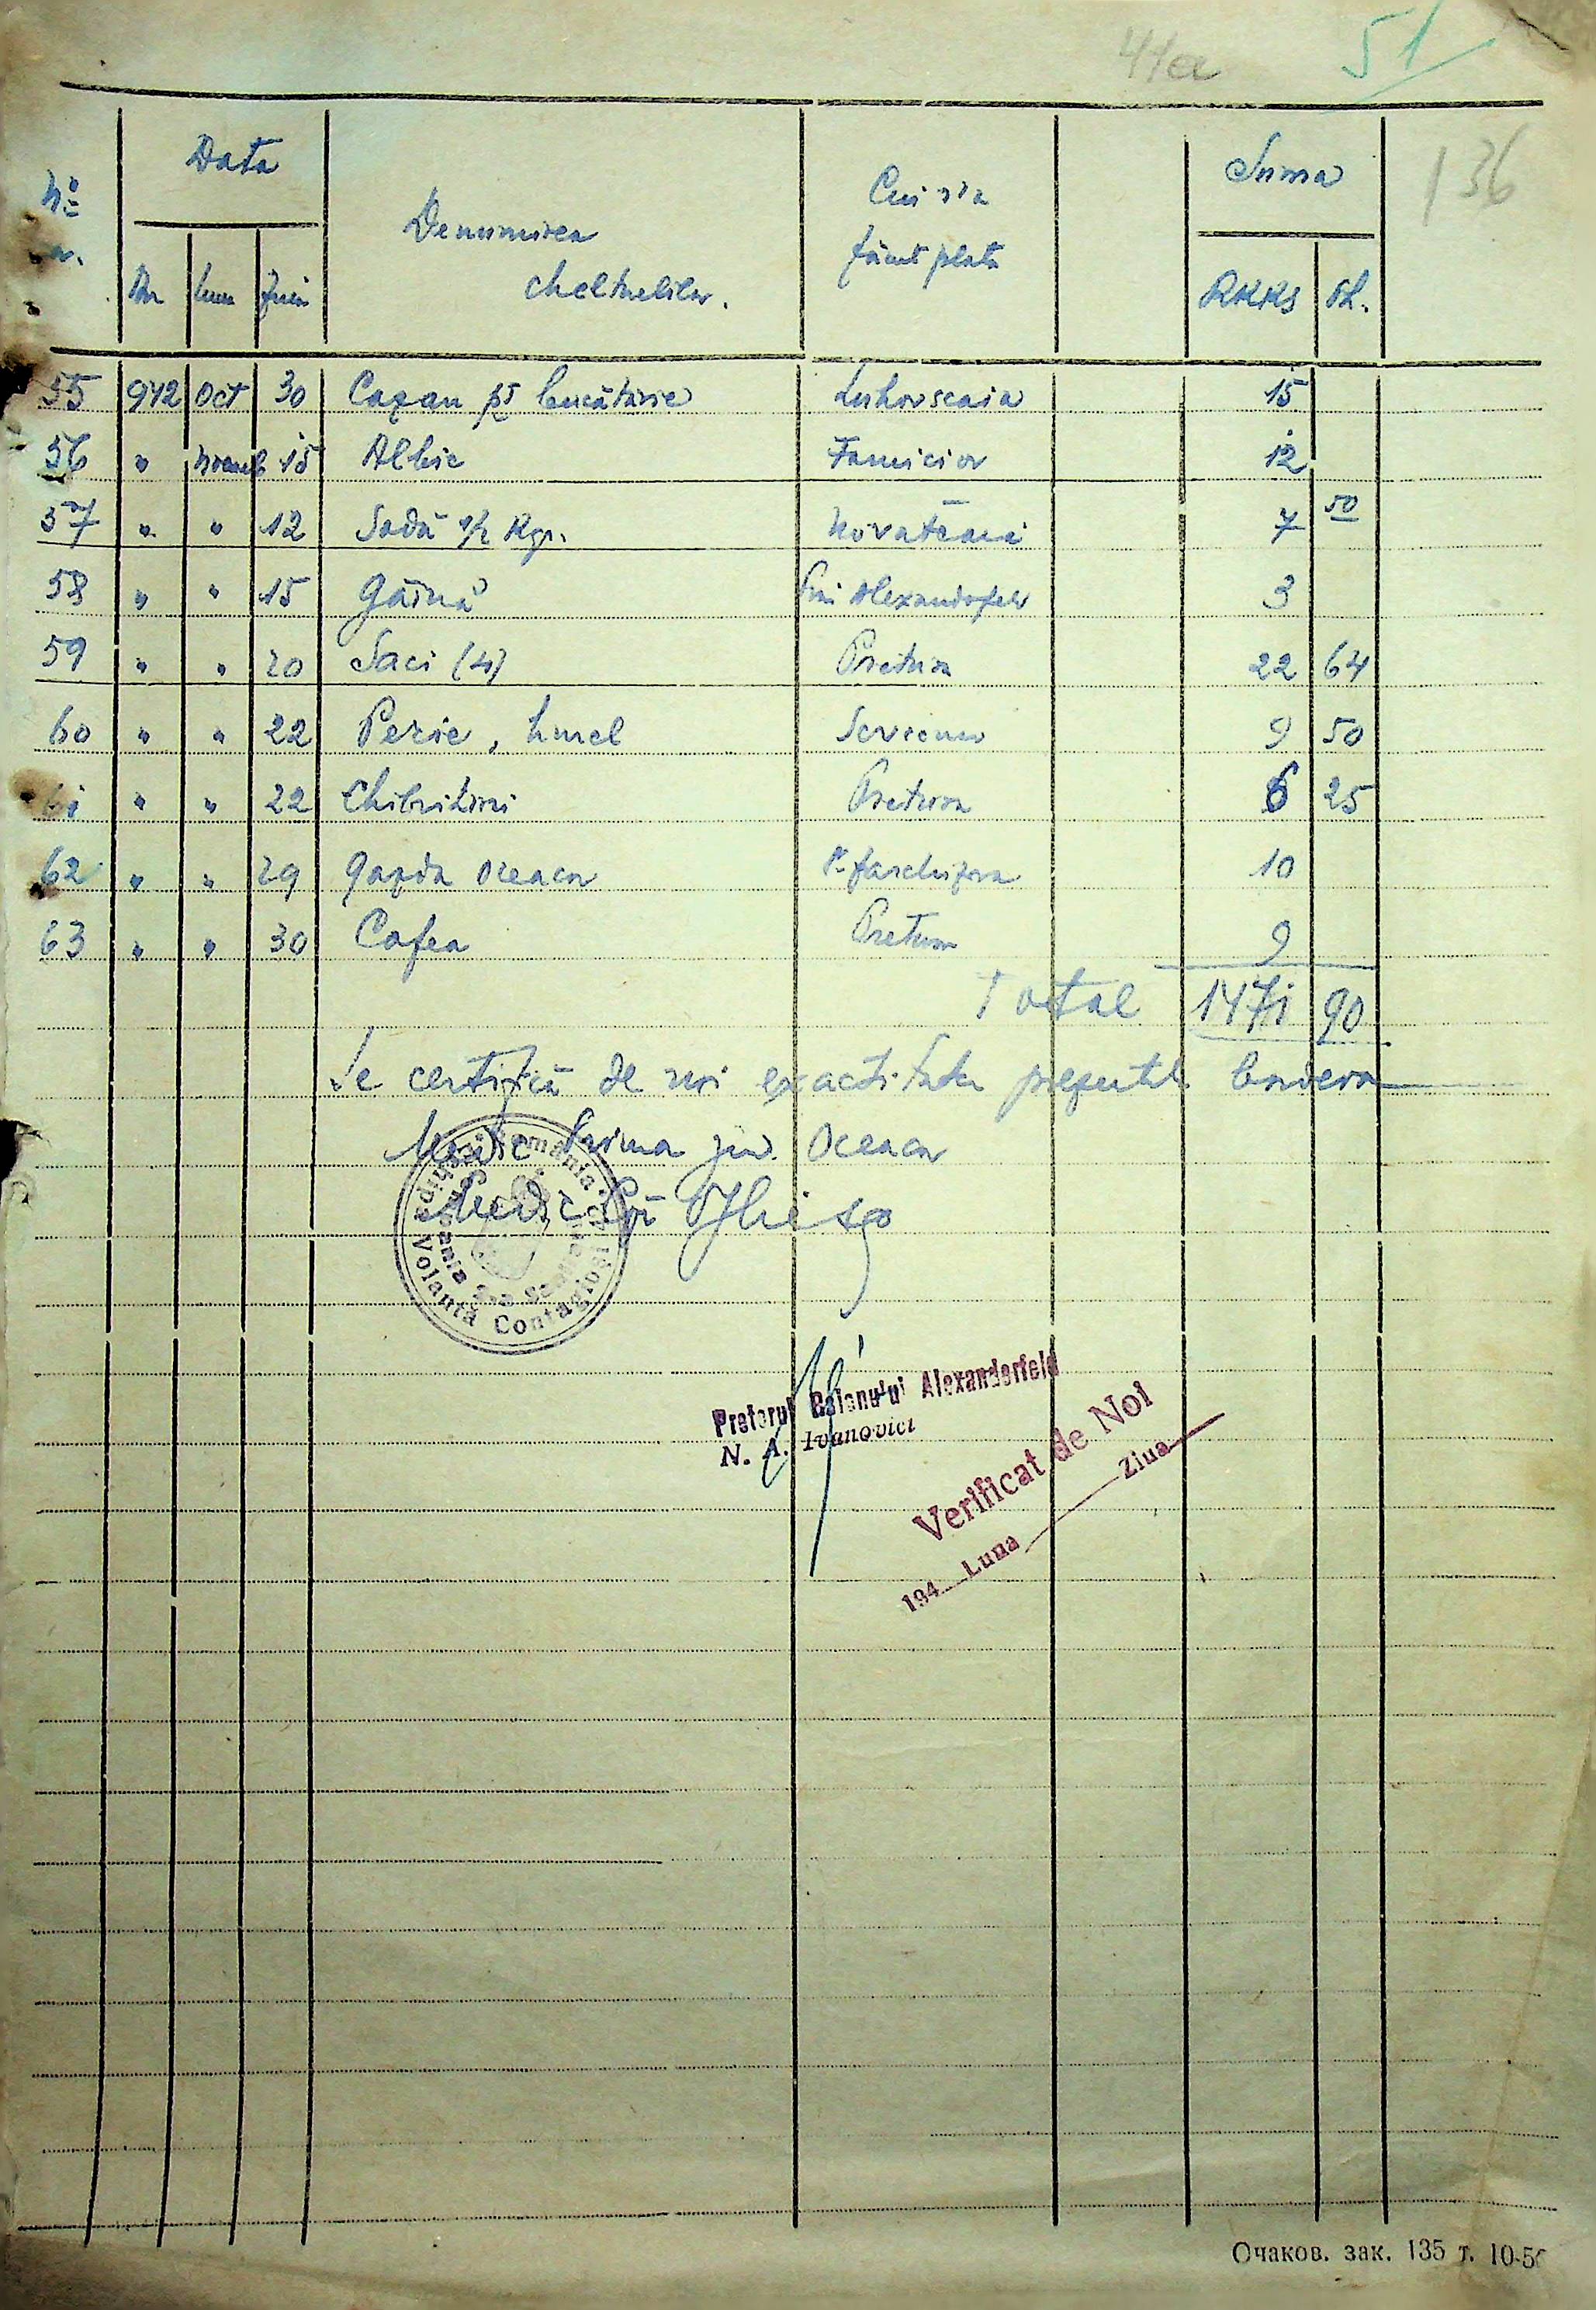 41a 51
136
No Data Denumirea cheltuelilor. Cui s'a făcut plata Suma
An Luna Ziua RKKS Pf.
55 942 Oct 30 Cazan pt bucătărie Luhovscaia 15
56 " Noemb 15 Albie Fomiciov 12
57 " " 12 Sodă 1/2 Kgr. 7 50
58 " " 15 Găină Alexanderfeld 3
59 " " 20 Saci (4) Pretura 22 64
60 " " 22 Perie, 9 50
61 " " 22 Chibrituri Pretura 6 25
62 " " 29 Gazda Oceacov 10
63 " " 30 Cafea Pretura 9
Total 1471 90
Se certifică de noi exactitatea prezentului
Medic Prima jud. Oceacov
Medic
România
Volantă Contagioși
Pretorul Raionului Alexanderfeld
N. A. Ivanovici
Verificat de Noi
194 Luna Ziua
Очаков. зак. 135 т. 10-50